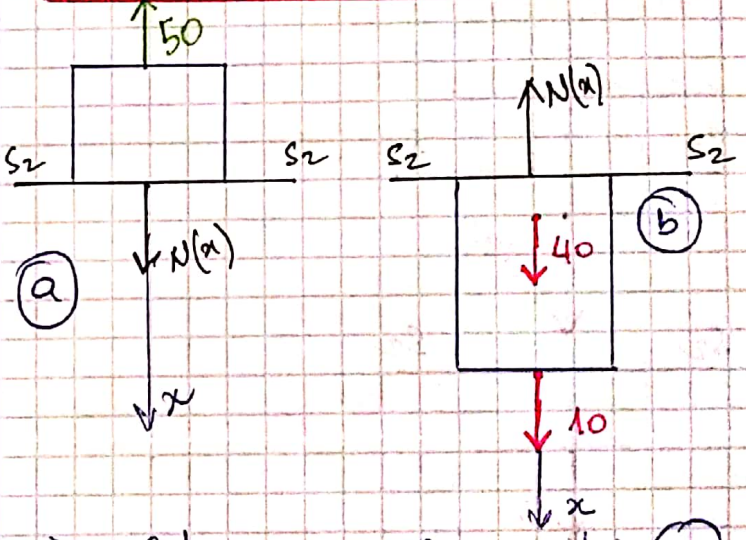 50
S2 S2
N(x)
a
x
N(x)
S2 S2
b
40
10
x